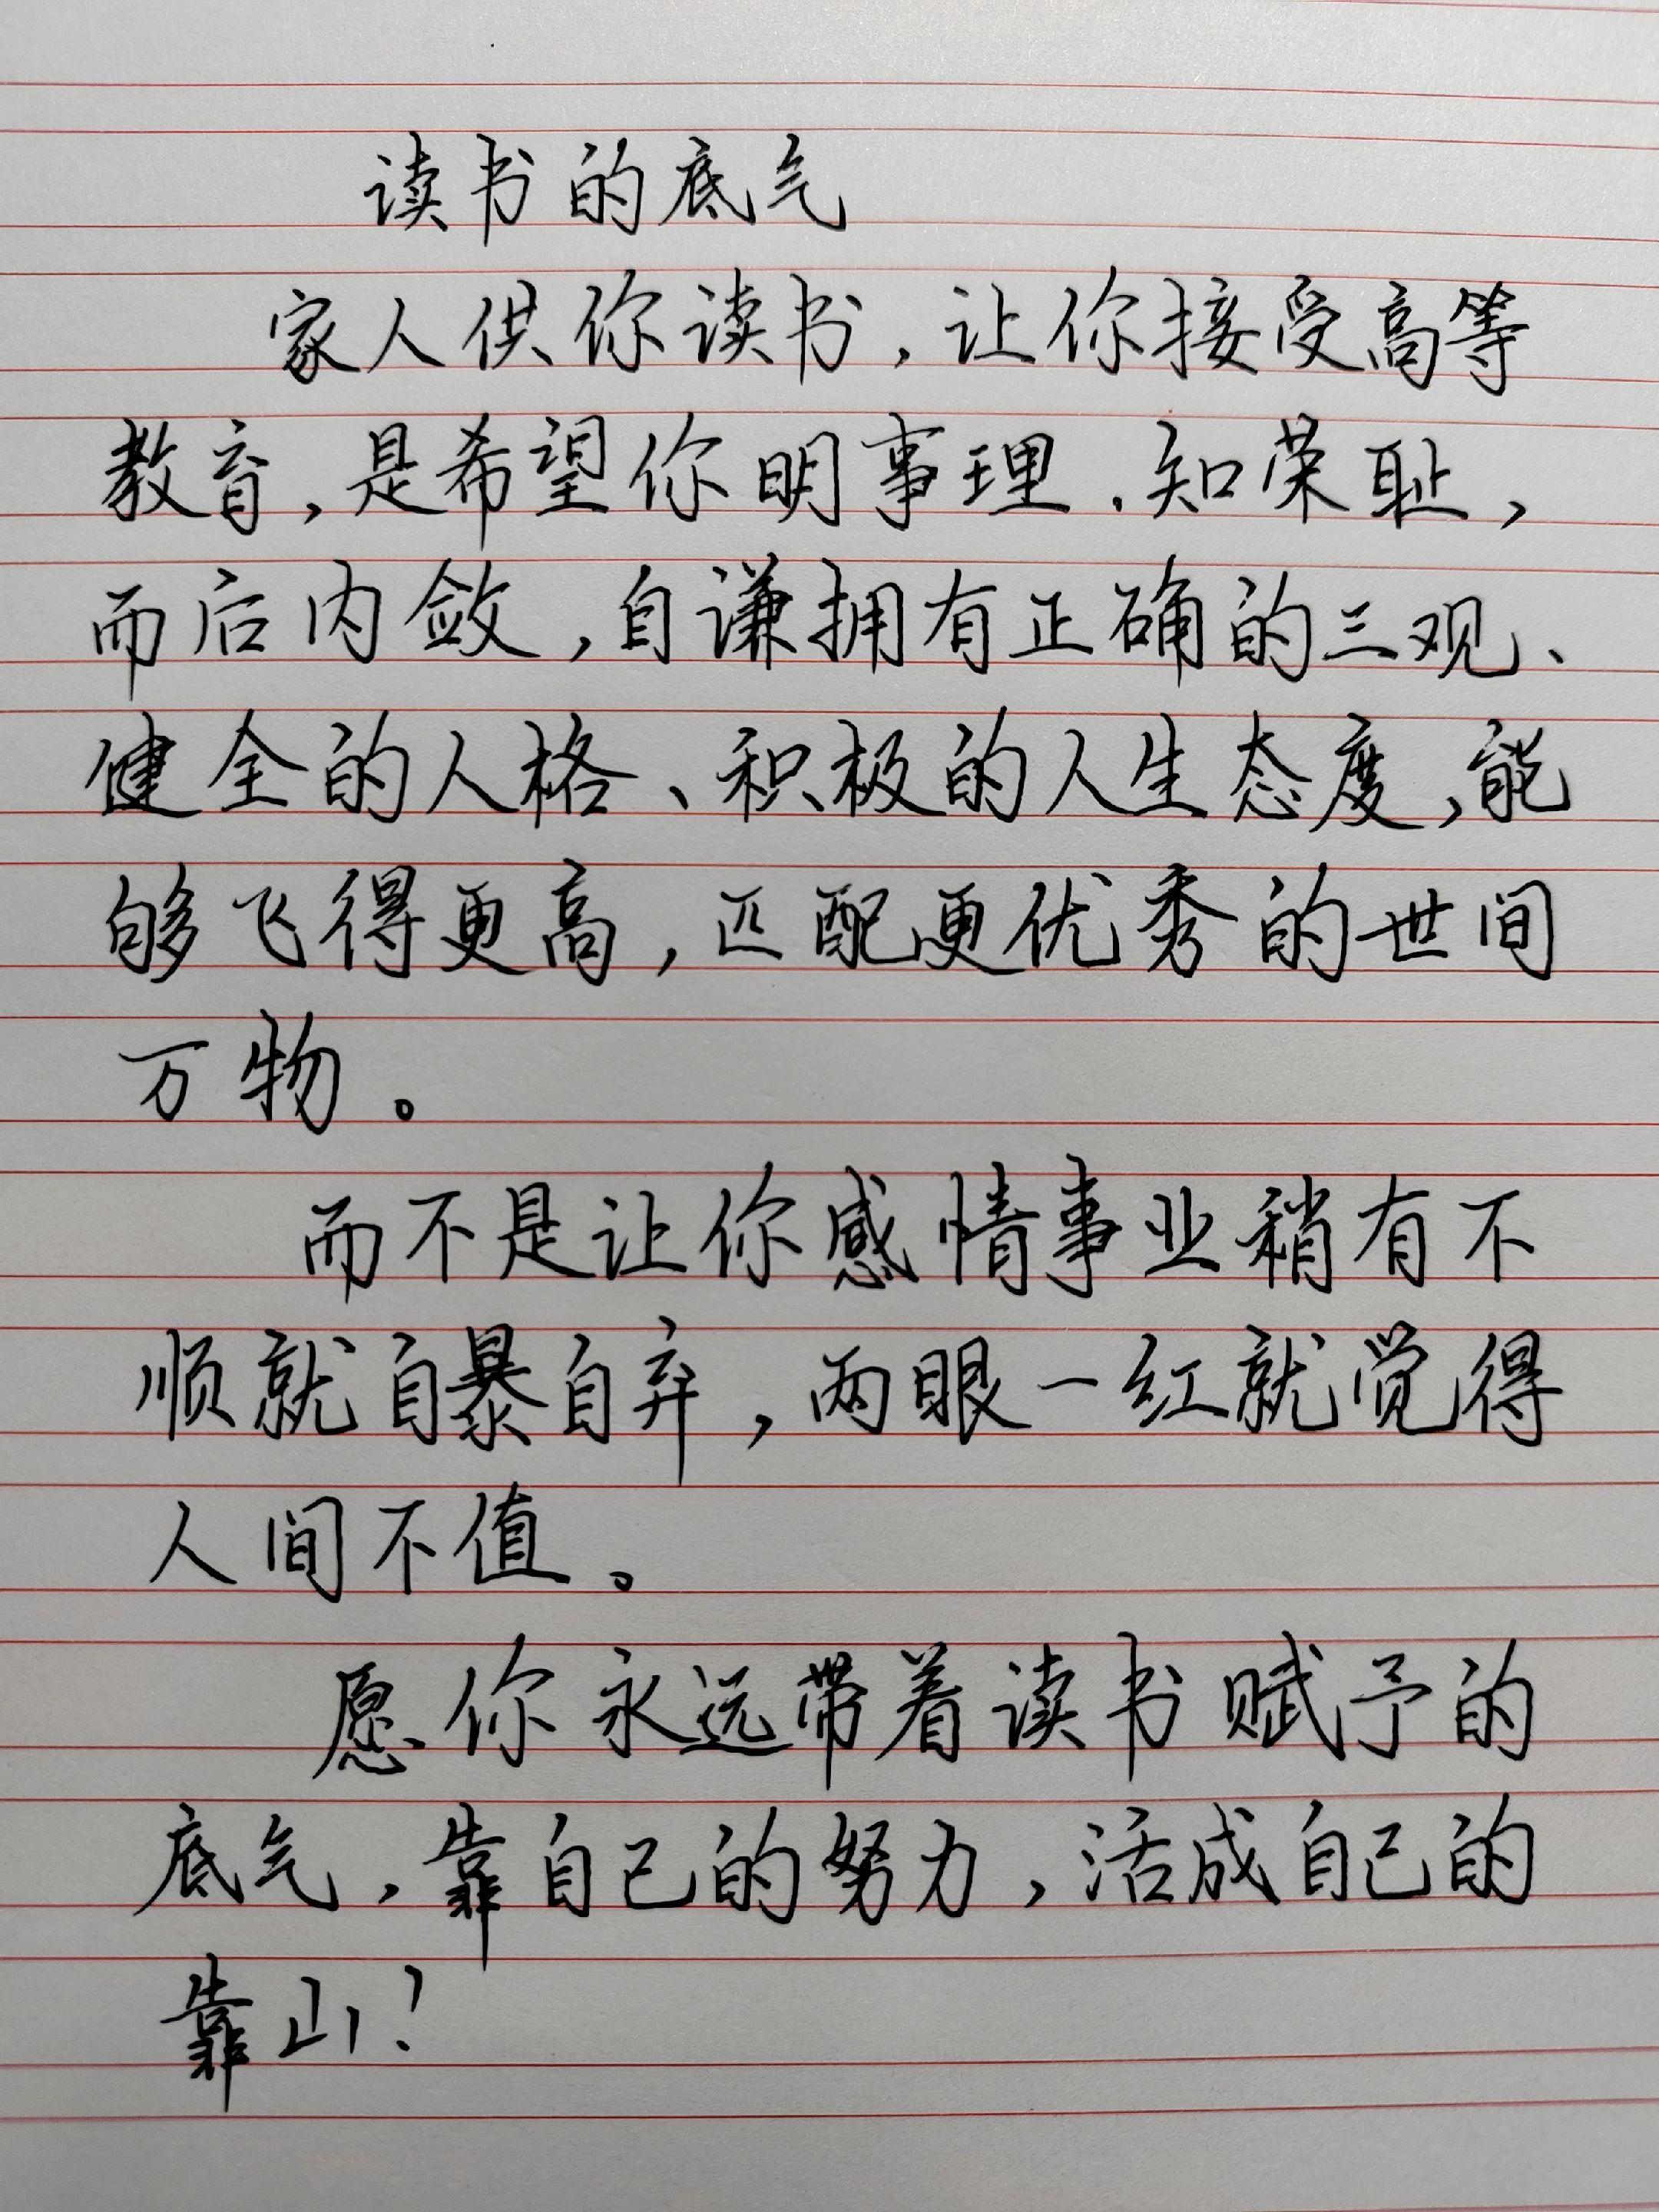 读书的底气
家人供你读书,让你接受高等
教育,是希望你明事理.知荣耻,
而后内敛,自谦拥有正确的三观、
健全的人格、积极的人生态度,能
够飞得更高,匹配更优秀的世间
万物。
而不是让你感情事业稍有不
顺就自暴自弃,两眼一红就觉得
人间不值。
愿你永远带着读书赋予的
底气,靠自己的努力,活成自己的
靠山!